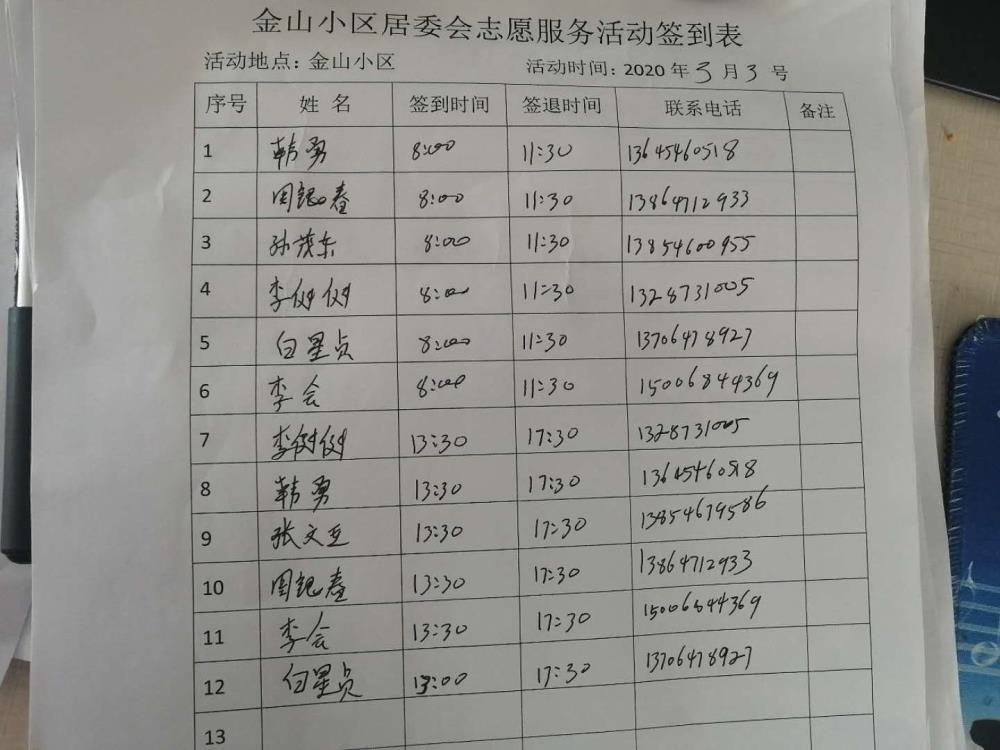 金山小区居委会志愿服务活动签到表
活动地点：金山小区 活动时间：2020 年 3 月 3 号
序号 姓 名 签到时间 签退时间 联系电话 备注
1 韩勇 8:00 11:30 13645460518
2 周 春 8:00 11:30 13864712933
3 孙茂东 8:00 11:30 13854600955
4 李树树 8:00 11:30 1328731005
5 白星贞 8:00 11:30 13706478927
6 李会 8:00 11:30 15006844369
7 李树树 13:30 17:30 1328731005
8 韩勇 13:30 17:30 13645460518
9 张文 13:30 17:30 13854679586
10 周 春 13:30 17:30 13864712933
11 李会 13:30 17:30 15006844369
12 白星贞 13:00 17:30 13706478927
13